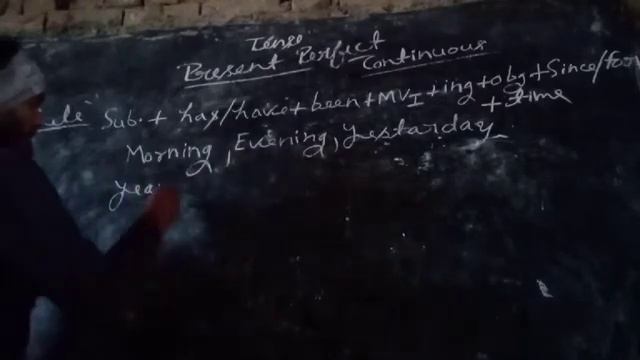 Tense
Present Perfect
Continuous
Rule Sub. + has/have + been + MVI + ing + obj + Since/for
+ time
Morning, Evening, Yestarday
yea